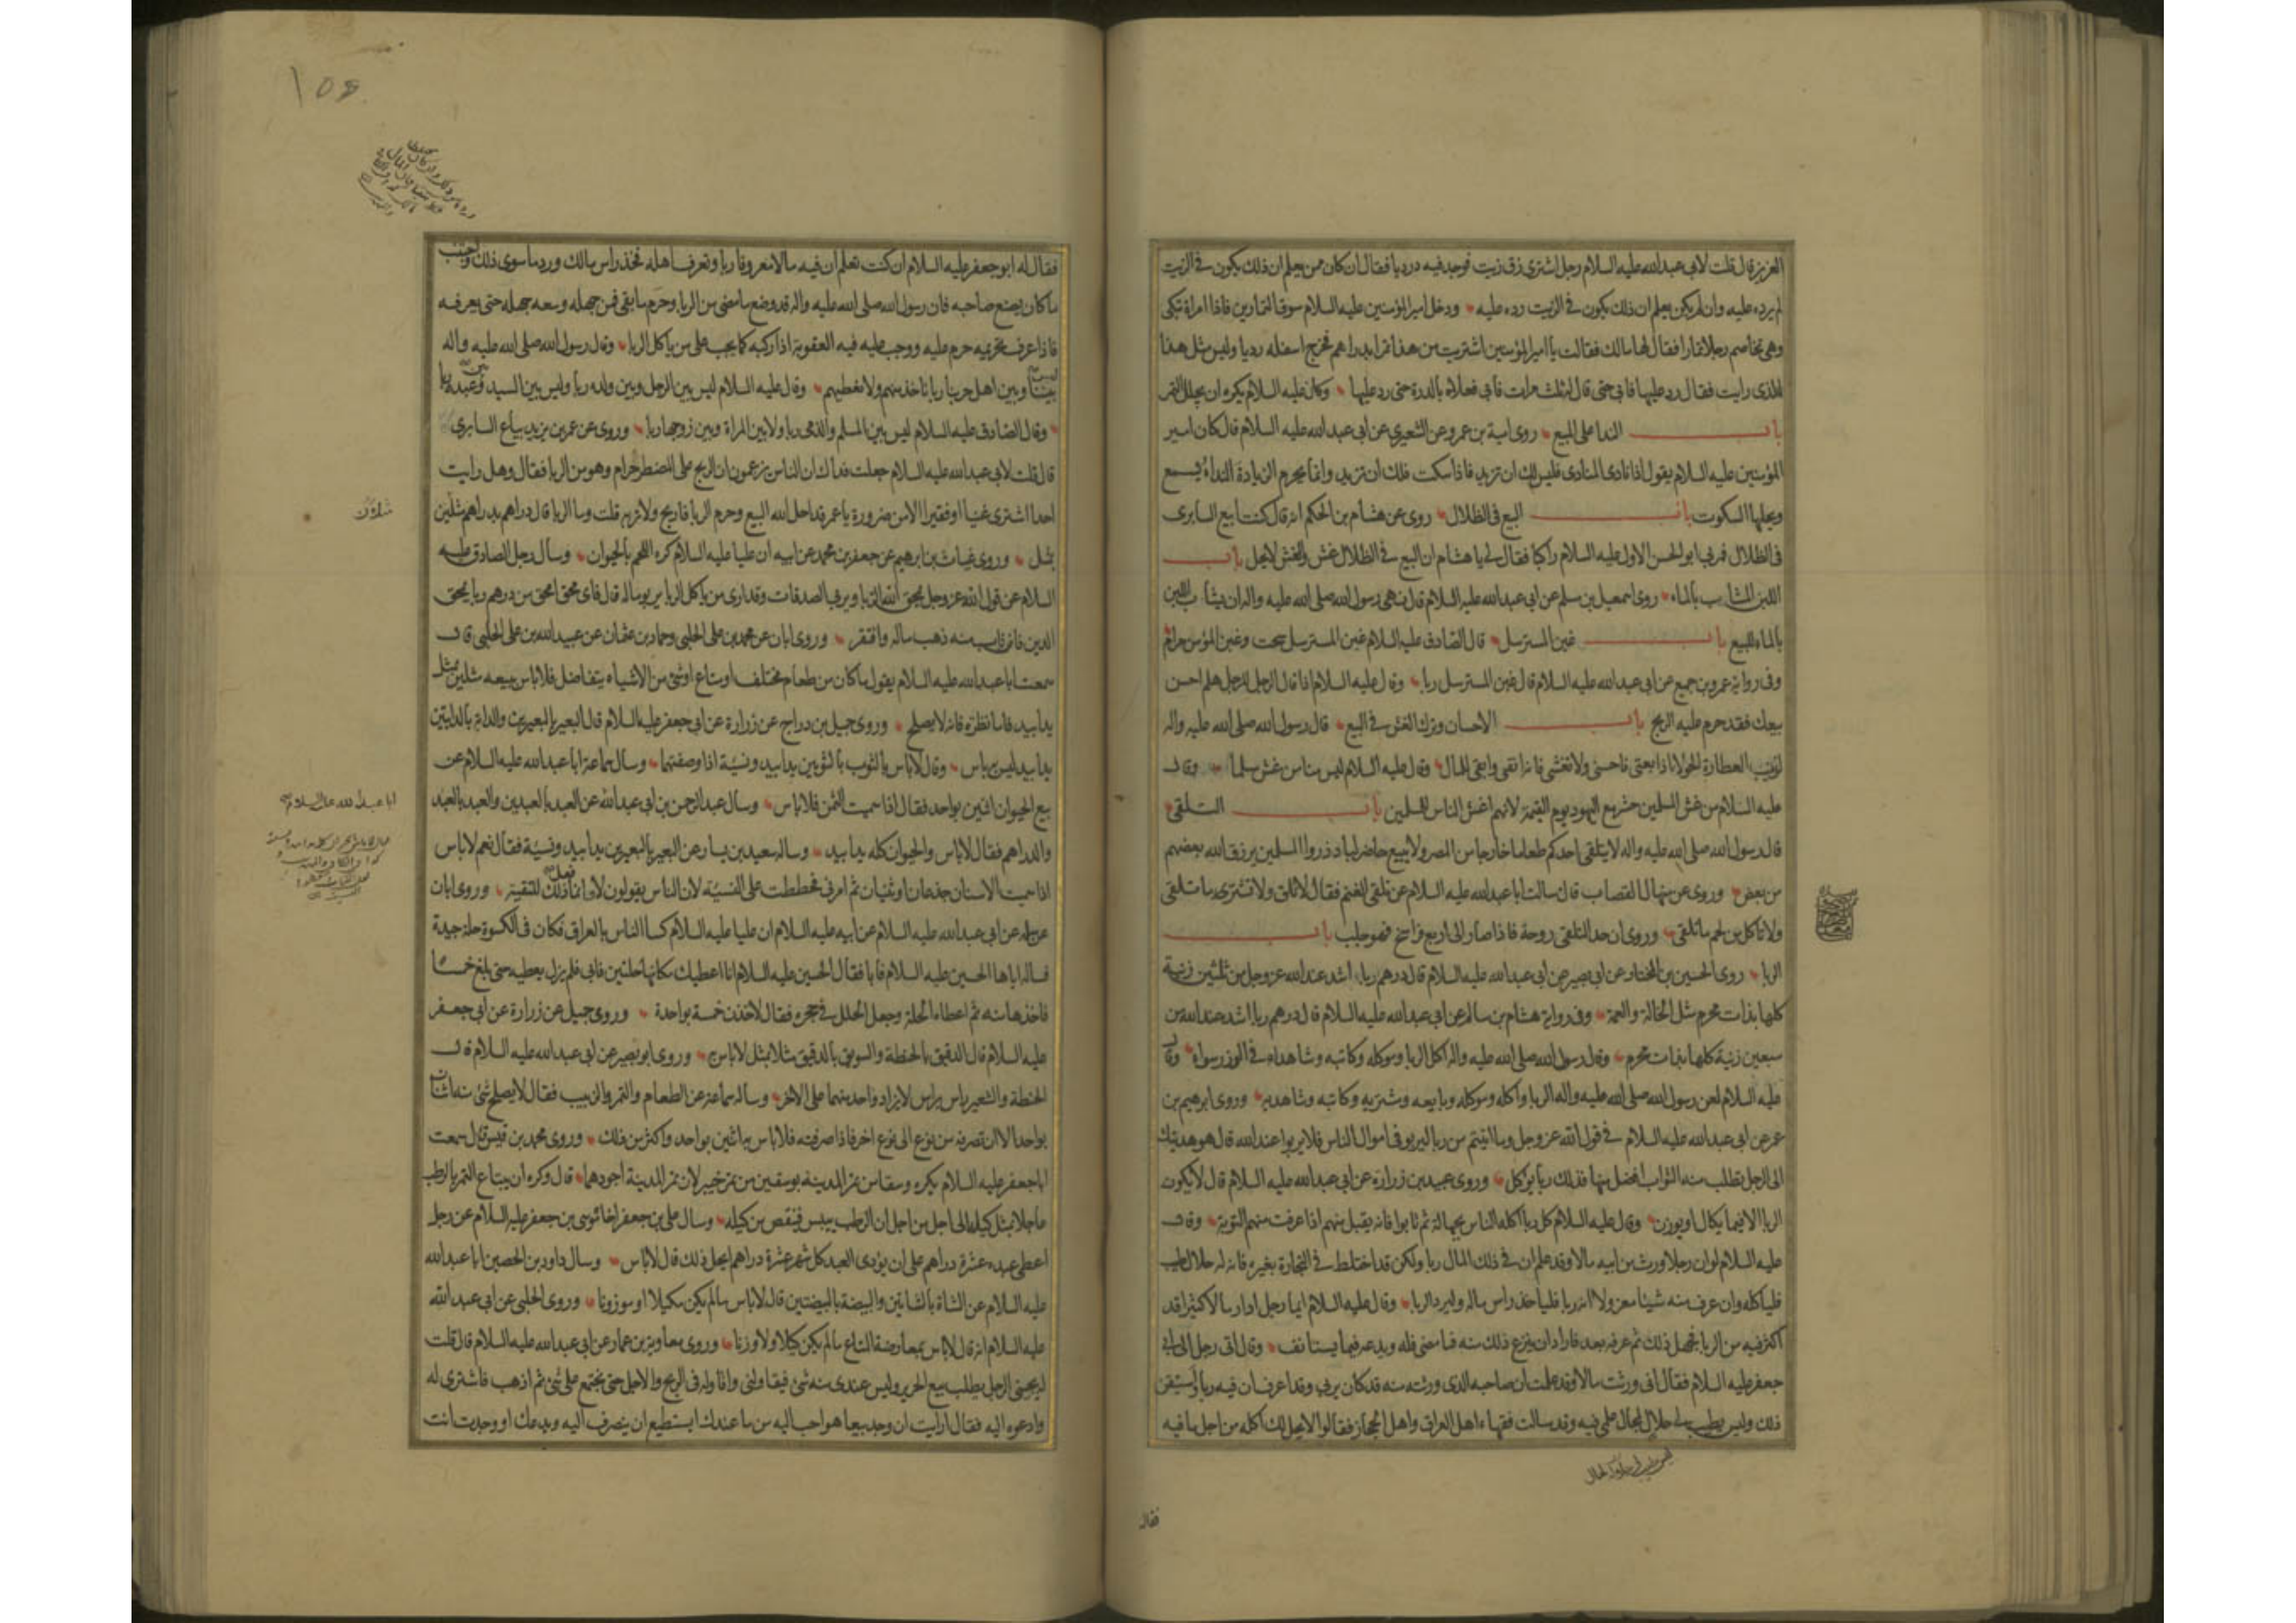 العزيز قال قلت لابي عبدالله عليه السلام رجل اشترى زق زيت فوجد فيه درديا فقال ان كان ممن يعلم ان ذلك يكون في الزيت
لم يرده عليه وان لم يكن يعلم ان ذلك يكون في الزيت رده عليه ودخل امير المؤمنين عليه السلام سوق التمارين فاذا امراة تبكى
وهى تخاصم رجلا تمارا فقال لها مالك فقالت يا امير المؤمنين اشتريت من هذا تمرا بدراهم فخرج اسفله رديا وليس مثل هذا
الذى رايت فقال رد عليها فابى حتى قال له ثلث مرات فابى فعلاه بالدرة حتى رد عليها وكان عليه السلام يكره ان يجلل التمر
باب الندا على البيع روى امية بن عمرو عن الشعيري عن ابى عبدالله عليه السلام قال كان امير
المؤمنين عليه السلام يقول اذا نادى المنادى فليس لك ان تزيد فاذا سكت فلك ان تزيد وانما يحرم الزيادة النداء يسمع
ويحلها السكوت باب البيع فى الظلال روى عن هشام بن الحكم انه قال كنت ابيع السابرى
فى الظلال فمر بى ابو الحسن الاول عليه السلام راكبا فقال لي يا هشام ان البيع في الظلال غش والغش لا يحل باب
اللبن المشاب بالماء روى اسمعيل بن مسلم عن ابى عبدالله عليه السلام قال نهى رسول الله صلى الله عليه واله ان يشاب اللبن
بالماء للبيع باب غبن المسترسل قال الصادق عليه السلام غبن المسترسل سحت وغبن المؤمن حرام
وفى رواية عمرو بن جميع عن ابى عبدالله عليه السلام قال غبن المسترسل ربا وقال عليه السلام اذا قال الرجل للرجل هلم احسن
بيعك فقد حرم عليه الربح باب الاحسان وترك الغش في البيع قال رسول الله صلى الله عليه واله
لزينب العطارة الحولا اذا بعتى فاحسنى ولا تغشى فانه انقى وابقى للمال وقال عليه السلام ليس منا من غش مسلما وقال
عليه السلام من غش المسلمين حشر مع اليهود يوم القيمة لانهم اغش الناس للمسلمين باب التلقى
قال رسول الله صلى الله عليه واله لا يتلقى احدكم طعاما خارجا من المصر ولا يبيع حاضر لباد ذروا المسلمين يرزق الله بعضهم
من بعض وروى عن منهال القصاب قال سالت ابا عبدالله عليه السلام عن تلقى الغنم فقال لا تلق ولا تشترى ما تلقى
ولا تاكل من لحم ما تلقى وروى ان حد التلقى روحة فاذا صار الى اربع فراسخ فهو جلب باب
الربا روى الحسين بن المختار عن ابى بصير عن ابى عبدالله عليه السلام قال درهم ربا اشد عند الله عز وجل من ثلثين زنية
كلها بذات محرم مثل الخالة والعمة وفى رواية هشام بن سالم عن ابى عبدالله عليه السلام قال درهم ربا اشد عند الله من
سبعين زنية كلها بذات محرم وقال رسول الله صلى الله عليه واله اكل الربا وموكله وكاتبه وشاهداه في الوزر سواء وقال
عليه السلام لعن رسول الله صلى الله عليه واله الربا واكله وموكله وبايعه ومشتريه وكاتبه وشاهديه وروى ابرهيم بن
عمر عن ابى عبدالله عليه السلام في قول الله عز وجل وما اتيتم من ربا ليربو فى اموال الناس فلا يربوا عند الله قال هو هديتك
الى الرجل تطلب منه الثواب افضل منها فذلك ربا يؤكل وروى عبيد بن زرارة عن ابى عبدالله عليه السلام قال لا يكون
الربا الا فيما يكال او يوزن وقال عليه السلام كل ربا اكله الناس بجهالة ثم تابوا فانه يقبل منهم اذا عرفت منهم التوبة وقال
عليه السلام لو ان رجلا ورث من ابيه مالا وقد علم ان في ذلك المال ربا ولكن قد اختلط في التجارة بغيره فانه له حلال طيب
فلياكله وان عرف منه شيئا معزولا انه ربا فلياخذ راس ماله وليرد الربا وقال عليه السلام ايما رجل ادار مالا كثيرا قد
اكثر فيه من الربا فجهل ذلك ثم عرفه بعد فاراد ان ينزع ذلك منه فما مضى فله ويدعه فيما يستانف وقال اتى رجل الى ابى
جعفر عليه السلام فقال انى ورثت مالا وقد علمت ان صاحبه الذى ورثته منه قد كان يربى وقد اعرف ان فيه ربا واستيقن
ذلك وليس بطيب لي حلال لحال علمى فيه وقد سالت فقهاء اهل العراق واهل الحجاز فقالوا لا يحل لك اكله من اجل ما فيه
فقال
فقال له ابو جعفر عليه السلام ان كنت تعلم ان فيه مالا معروفا ربا وتعرف اهله فخذ راس مالك ورد ما سوى ذلك واجتنب
ما كان يصنع صاحبه فان رسول الله صلى الله عليه واله قد وضع ما مضى من الربا وحرم ما بقى فمن جهله وسعه جهله حتى يعرفه
فاذا عرف تحريمه حرم عليه ووجب عليه فيه العقوبة اذا ركبه كما يجب على من ياكل الربا وقال رسول الله صلى الله عليه واله
ليس بيننا وبين اهل حربنا ربا ناخذ منهم ولا نعطيهم وقال عليه السلام ليس بين الرجل وبين ولده ربا وليس بين السيد وبين عبده ربا
وقال الصادق عليه السلام ليس بين المسلم والذمى ربا ولا بين المراة وبين زوجها ربا وروى عن عمر بن يزيد بياع السابرى
قال قلت لابى عبدالله عليه السلام جعلت فداك ان الناس يزعمون ان الربح على المضطر حرام وهو من الربا فقال وهل رايت
احدا اشترى غنيا او فقيرا الا من ضرورة يا عمر قد احل الله البيع وحرم الربا فاربح ولا ترب قلت وما الربا قال دراهم بدراهم مثلين
بمثل وروى غياث بن ابرهيم عن جعفر بن محمد عن ابيه ان عليا عليه السلام كره اللحم بالحيوان وسال رجل الصادق عليه
السلام عن قول الله عز وجل يمحق الله الربا ويربى الصدقات وقد ارى من ياكل الربا يربو ماله قال فاى محق امحق من درهم ربا يمحق
الدين فان تاب منه ذهب ماله وافتقر وروى ابان عن محمد بن على الحلبى وحماد بن عثمان عن عبيدالله بن على الحلبى قال
سمعت ابا عبدالله عليه السلام يقول ما كان من طعام مختلف او متاع او شئ من الاشياء يتفاضل فلا باس ببيعه مثلين بمثل
يدا بيد فاما نظرة فانه لا يصلح وروى جميل بن دراج عن زرارة عن ابى جعفر عليه السلام قال البعير بالبعيرين والدابة بالدابتين
يدا بيد ليس به باس وقال لا باس بالثوب بالثوبين يدا بيد ونسيئة اذا وصفتهما وسال سماعة ابا عبدالله عليه السلام عن
بيع الحيوان اثنين بواحد فقال اذا سميت الثمن فلا باس وسال عبد الرحمن بن ابى عبدالله عن العبد بالعبدين والعبد بالعبد
والدراهم فقال لا باس والحيوان كله يدا بيد وساله سعيد بن يسار عن البعير بالبعيرين يدا بيد ونسيئة فقال نعم لا باس
اذا سميت الاسنان جذعان او ثنيان ثم امرنى فخططت على النسيئة لان الناس يقولون لا وانما فعل ذلك للتقية وروى ابان
عن ابى عبدالله عليه السلام عن ابيه عليه السلام ان عليا عليه السلام كسا الناس بالعراق فكان فى الكسوة حلة جيدة
فساله اياها الحسين عليه السلام فابا فقال الحسين عليه السلام انا اعطيك مكانها حلتين فابى فلم يزل يعطيه حتى بلغ خمسا
فاخذها منه ثم اعطاه الحلة وجعل الحلل في حجره فقال لاخذن خمسة بواحدة وروى جميل عن زرارة عن ابى جعفر
عليه السلام قال الدقيق بالحنطة والسويق بالدقيق مثلا بمثل لا باس به وروى ابو بصير عن ابى عبدالله عليه السلام قال
الحنطة والشعير راس براس لا يزاد واحد منهما على الاخر وساله سماعة عن الطعام والتمر والزبيب فقال لا يصلح شئ منه اثنان
بواحد الا ان تصرفه من نوع الى نوع اخر فاذا صرفته فلا باس به اثنين بواحد واكثر من ذلك وروى محمد بن قيس قال سمعت
ابا جعفر عليه السلام يكره وسقا من تمر المدينة بوسقين من تمر خيبر لان تمر المدينة اجودهما قال وكره ان يباع التمر بالرطب
عاجلا بمثل كيله الى اجل من اجل ان الرطب ييبس فينقص من كيله وسال على بن جعفر اخاه موسى بن جعفر عليه السلام عن رجل
اعطى عبده عشرة دراهم على ان يؤدى العبد كل شهر عشرة دراهم ايحل ذلك قال لا باس وسال داود بن الحصين ابا عبدالله
عليه السلام عن الشاة بالشاتين والبيضة بالبيضتين قال لا باس ما لم يكن مكيلا او موزونا وروى الحلبى عن ابى عبدالله
عليه السلام انه قال لا باس بمعاوضة المتاع ما لم يكن كيلا ولا وزنا وروى معاوية بن عمار عن ابى عبدالله عليه السلام قال قلت
له يجيئنى الرجل يطلب بيع الحرير وليس عندى منه شئ فيقاولنى واقاوله فى الربح والاجل حتى نجتمع على شئ ثم اذهب فاشترى له
وادعوه اليه فقال ارايت ان وجد بيعا هو احب اليه من ما عندك ايستطيع ان ينصرف اليه ويدعك او وجدت انت
ابا عبدالله عليه السلام